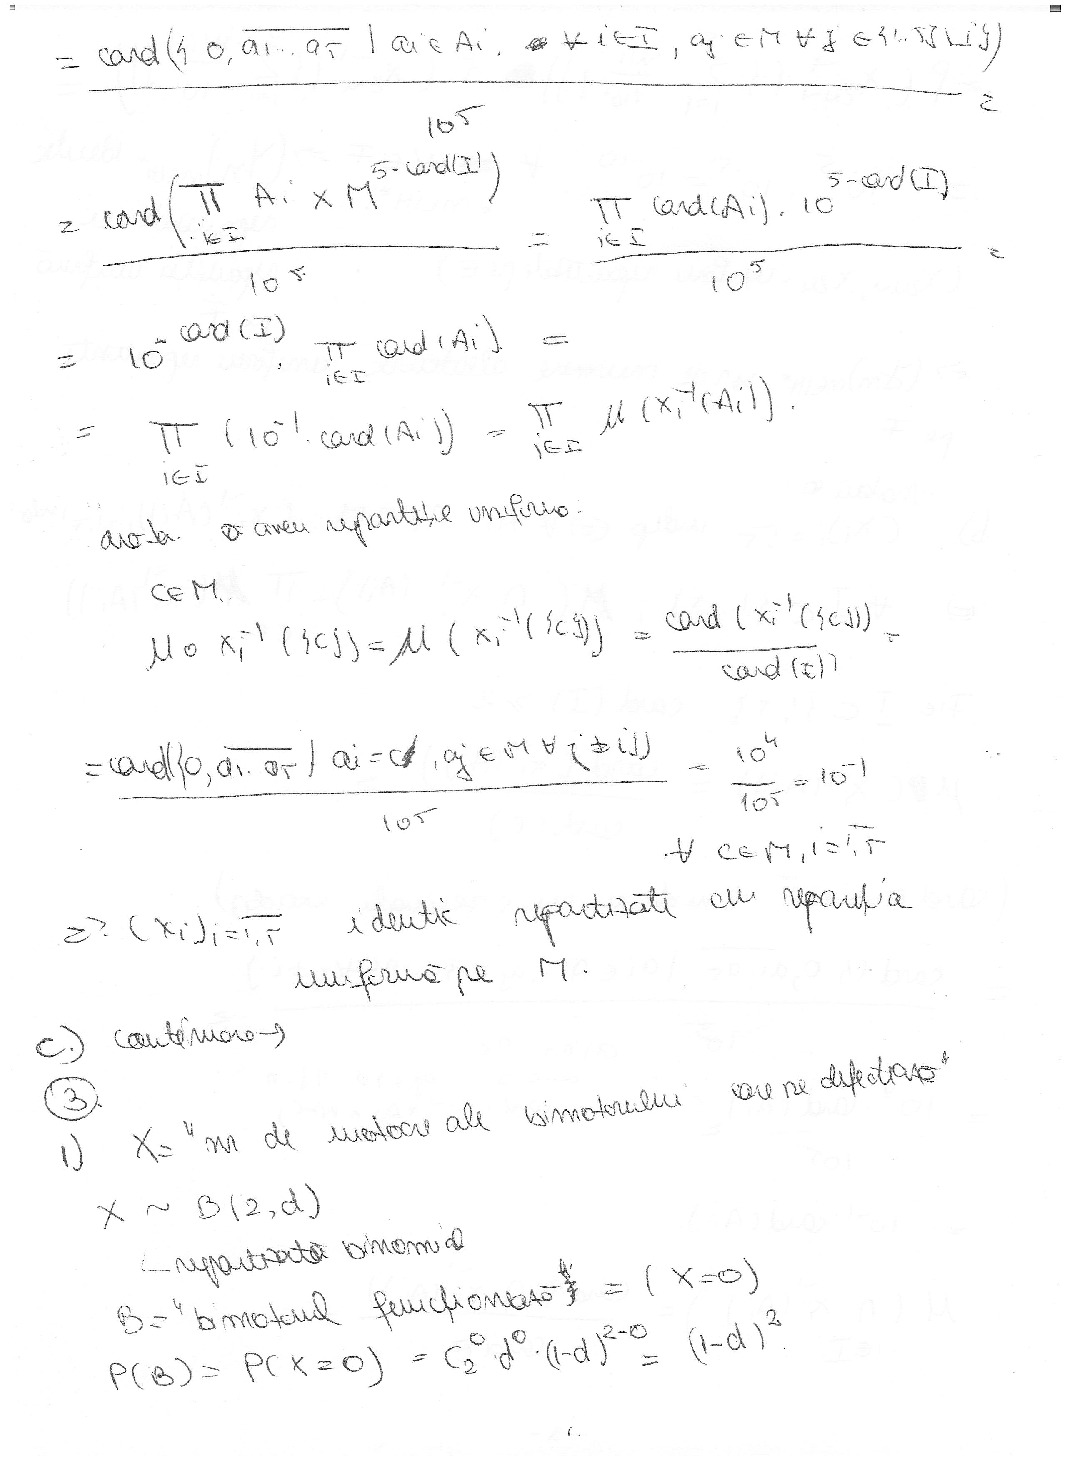 = card({0, a1...a5 | ai ∈ Ai, ∀ i∈I, aj ∈ M ∀ j ∈ {1..5}\I})
10^5 =
= card(∏ i∈I Ai × M^(5-card(I))) / 10^5 = ∏ i∈I card(Ai). 10^(5-card(I)) / 10^5 =
= 10^(-card(I)) . ∏ i∈I card(Ai) =
= ∏ i∈I (10^-1. card(Ai)) = ∏ i∈I μ(Xi^-1(Ai)).
arăta avem repartiție uniformă.
c∈M.
μ∘Xi^-1({c}) = μ(Xi^-1({c})) = card(Xi^-1({c})) / card(I) =
= card({0, a1..a5 | ai = c, aj ∈ M ∀ j≠i}) / 10^5 = 10^4 / 10^5 = 10^-1
∀ c∈M, i=1,5
=> (Xi)i=1,5 identic repartizate cu repartiția
uniformă pe M.
c.) continuare→
3.
1) X = "nr de motoare ale bimotorului care se defectează"
X ~ B(2,d)
repartizată binomial
B = "bimotorul funcționează" = (X=0)
P(B) = P(X=0) = C2^0 . d^0 . (1-d)^(2-0) = (1-d)^2.